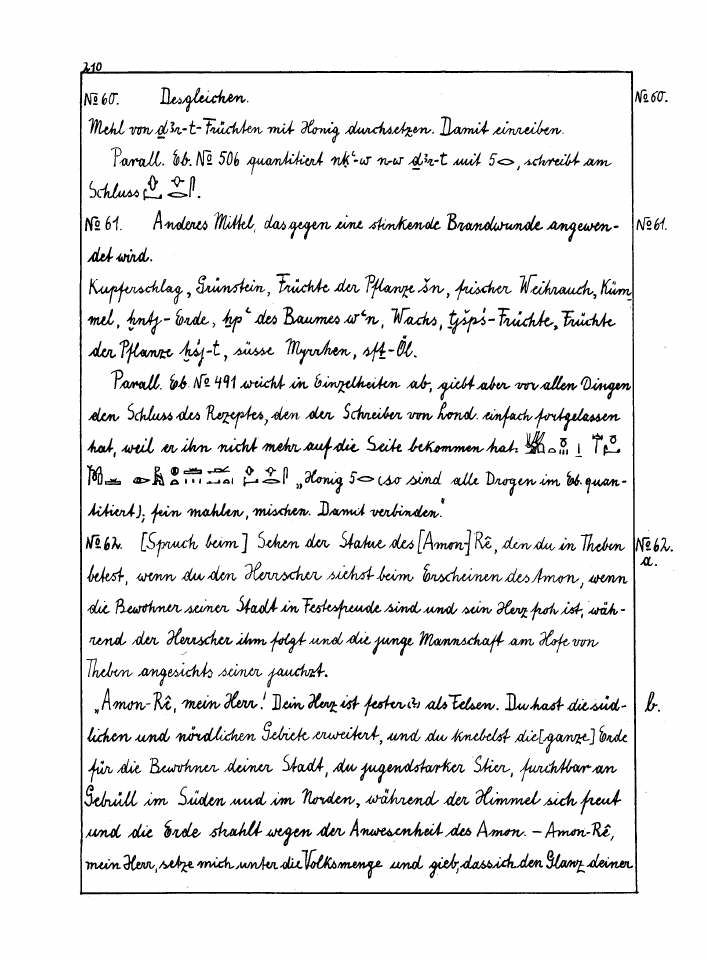 210
№ 60. Desgleichen. № 60.
Mehl von d3r-t-Früchten mit Honig durchsetzen. Damit einreiben.
Parall. Eb. № 506 quantitiert nkʿ-w n-w d3r-t mit 5, schreibt am
Schluss
№ 61. Anderes Mittel, das gegen eine stinkende Brandwunde angewen- № 61.
det wird.
Kupferschlag, Grünstein, Früchte der Pflanze šn, frischer Weihrauch, Küm
mel, ḫntj-Erde, ḫpʿ des Baumes wʿn, Wachs, tjšpś-Früchte, Früchte
der Pflanze ḫśj-t, süsse Myrrhen, sft-Öl.
Parall. Eb. № 491 weicht in Einzelheiten ab, giebt aber vor allen Dingen
den Schluss des Rezeptes, den der Schreiber von Lond. einfach fortgelassen
hat, weil er ihn nicht mehr auf die Seite bekommen hat:
„Honig 5 (so sind alle Drogen im Eb. quan-
titiert); fein mahlen, mischen. Damit verbinden."
№ 62. [Spruch beim] Sehen der Statue des [Amon-]Rê, den du in Theben № 62.
a.
betest, wenn du den Herrscher siehst beim Erscheinen des Amon, wenn
die Bewohner seiner Stadt in Festesfreude sind und sein Herz froh ist, wäh-
rend der Herrscher ihm folgt und die junge Mannschaft am Hofe von
Theben angesichts seiner jauchzt.
„Amon-Rê, mein Herr! Dein Herz ist fester (?) als Felsen. Du hast die süd- b.
lichen und nördlichen Gebiete erweitert, und du knebelst die [ganze] Erde
für die Bewohner deiner Stadt, du jugendstarker Stier, furchtbar an
Gebrüll im Süden und im Norden, während der Himmel sich freut
und die Erde strahlt wegen der Anwesenheit des Amon. – Amon-Rê,
mein Herr, setze mich unter die Volksmenge und gieb, dass ich den Glanz deiner